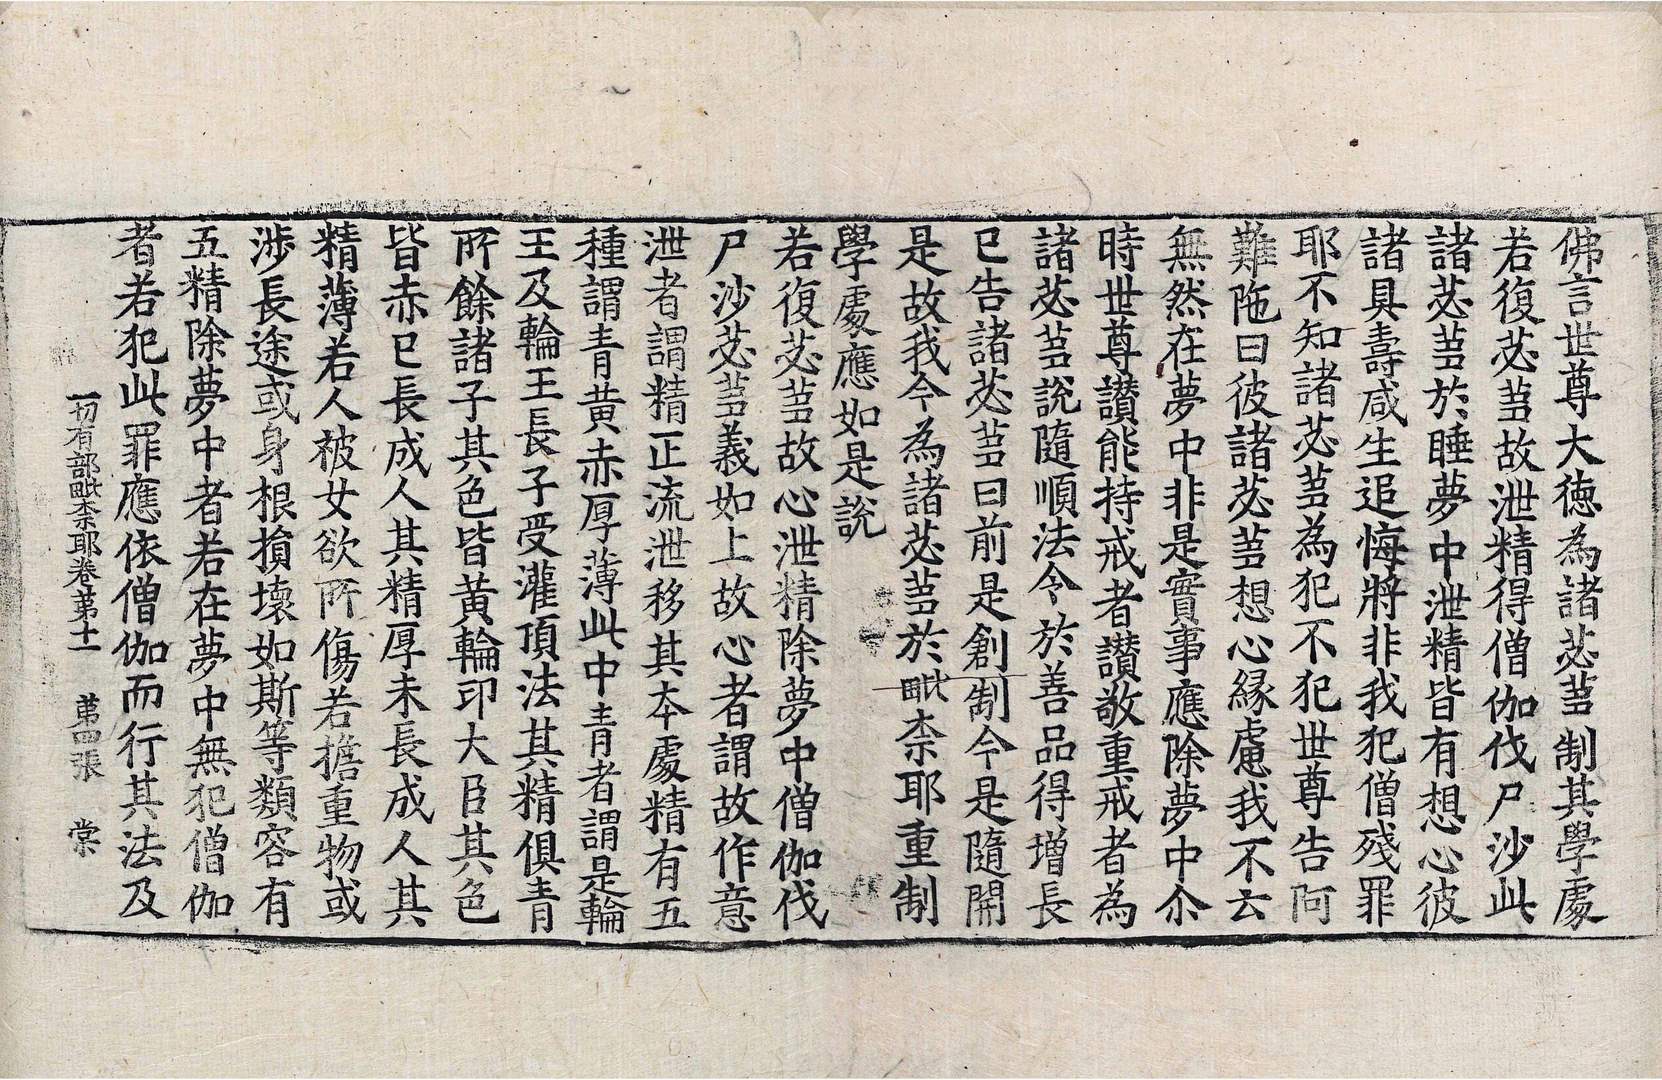 佛言世尊大德為諸苾蒭制其學處
若復苾蒭故泄精得僧伽伐尸沙此
諸苾蒭於睡夢中泄精皆有想心彼
諸具壽咸生追悔將非我犯僧殘罪
耶不知諸苾蒭為犯不犯世尊告阿
難陁曰彼諸苾蒭想心緣慮我不云
無然在夢中非是實事應除夢中尒
時世尊讚能持戒者讚敬重戒者為
諸苾蒭說隨順法令於善品得增長
已告諸苾蒭曰前是創制今是隨開
是故我今為諸苾蒭於毗柰耶重制
學處應如是說
若復苾蒭故心泄精除夢中僧伽伐
尸沙苾蒭義如上故心者謂故作意
泄者謂精正流泄移其本處精有五
種謂青黄赤厚薄此中青者謂是輪
王及輪王長子受灌頂法其精俱青
所餘諸子其色皆黃輪印大臣其色
皆赤已長成人其精厚未長成人其
精薄若人被女欲所傷若擔重物或
涉長途或身根損壞如斯等類容有
五精除夢中者若在夢中無犯僧伽
者若犯此罪應依僧伽而行其法及
一切有部毗柰耶卷第十一　第四張　棠